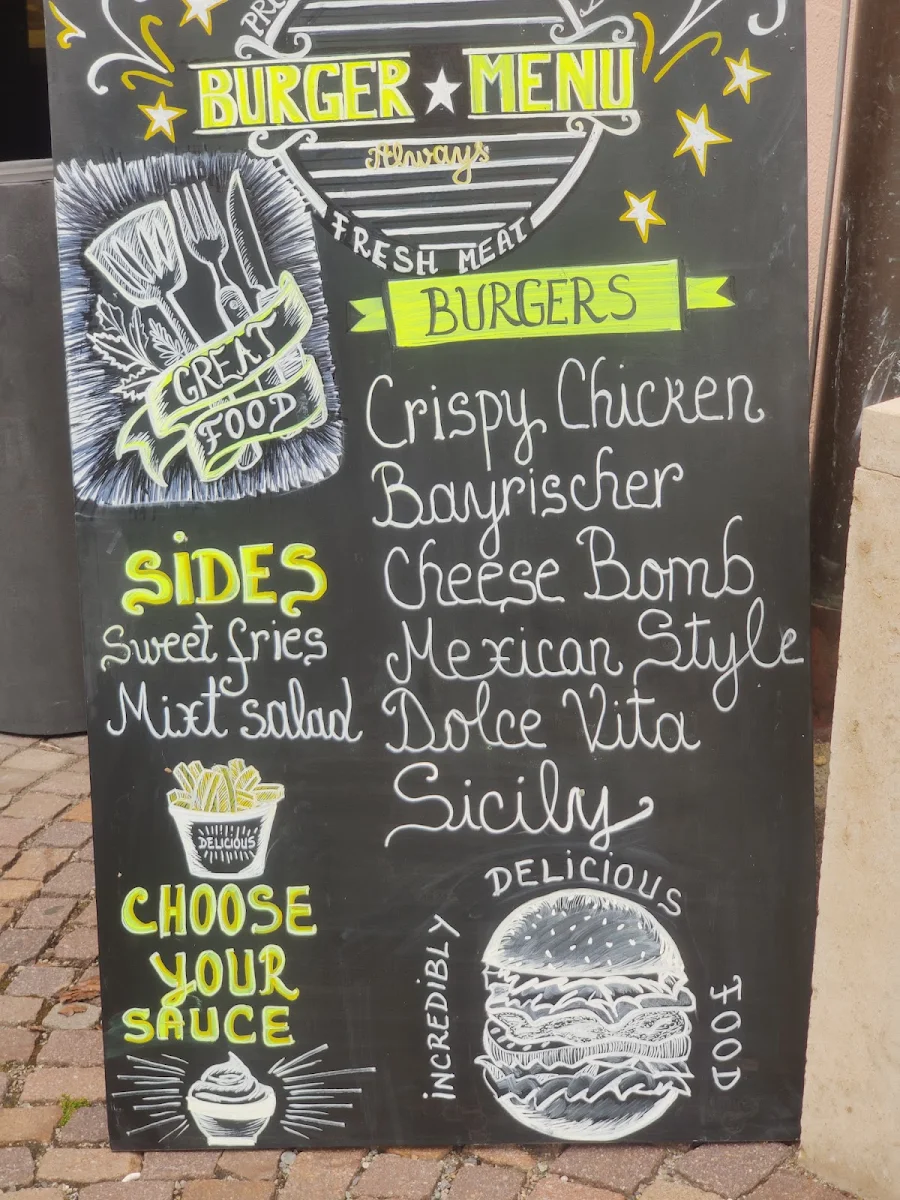 BURGER MENU
Always
FRESH MEAT
GREAT
FOOD
BURGERS
Crispy Chicken
Bayrischer
Cheese Bomb
Mexican Style
Dolce Vita
Sicily
SIDES
Sweet fries
Mixt salad
DELICIOUS
CHOOSE
YOUR
SAUCE
INCREDIBLY
DELICIOUS
FOOD